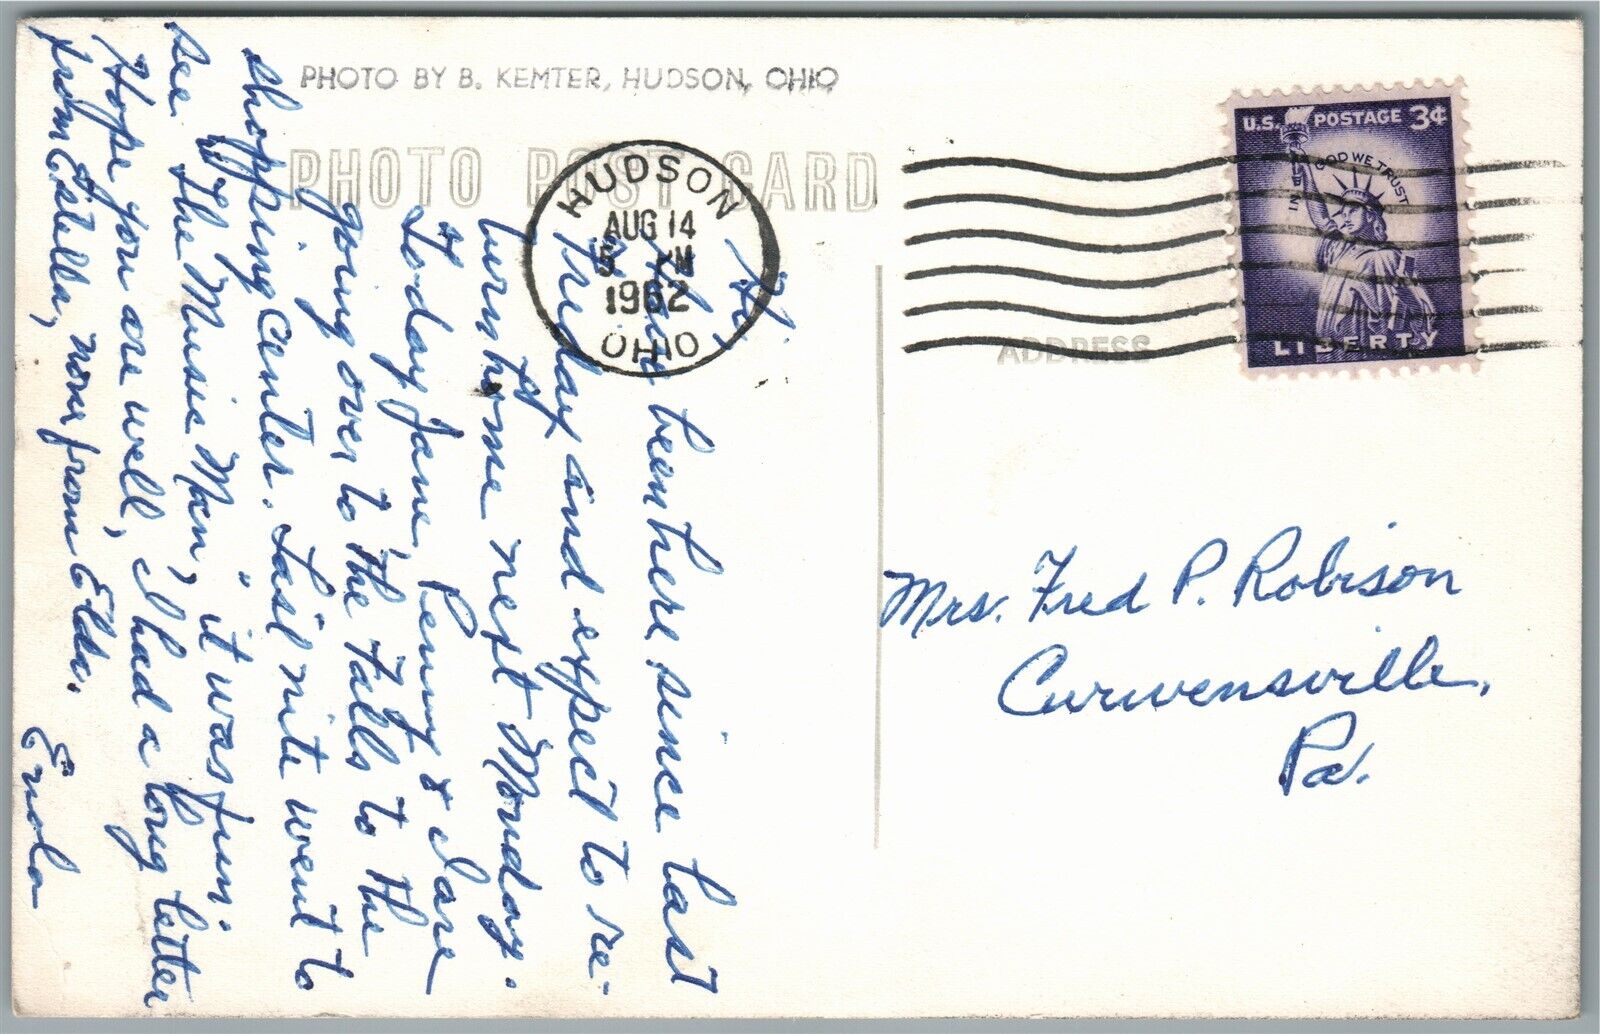 PHOTO BY B. KEMTER, HUDSON, OHIO
PHOTO POST CARD
HUDSON
AUG 14
5 M
1962
OHIO
U.S. POSTAGE 3¢
IN GOD WE TRUST
LIBERTY
ADDRESS
Hi,
Have been here since last
Friday and expect to re-
turn home next Monday.
Today Jane, Penny & I are
going over to the Falls to the
shopping center. Last nite went to
see "The Music Man," it was fun.
Hope you are well, I had a long letter
from Estella, none from Elda.
Enola
Mrs. Fred P. Robison
Curwensville,
Pa.